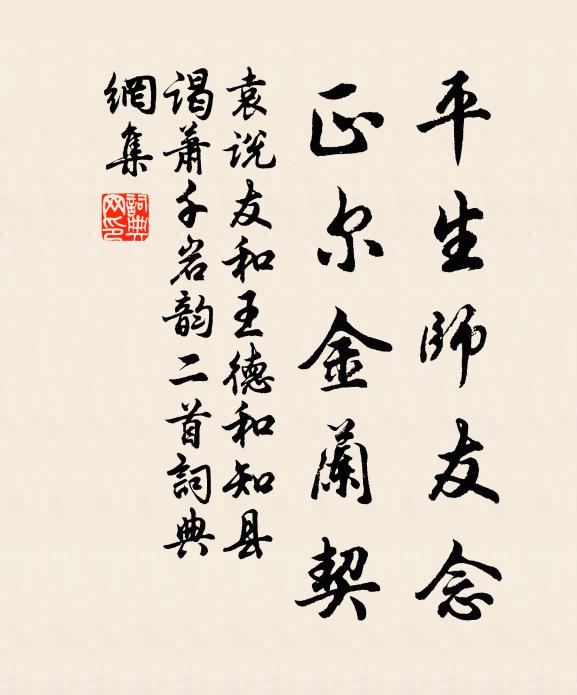 平生師友念
正尔金蘭契
袁说友和王德和知县
谒萧千岩韵二首詞典
網集
詞典
网印